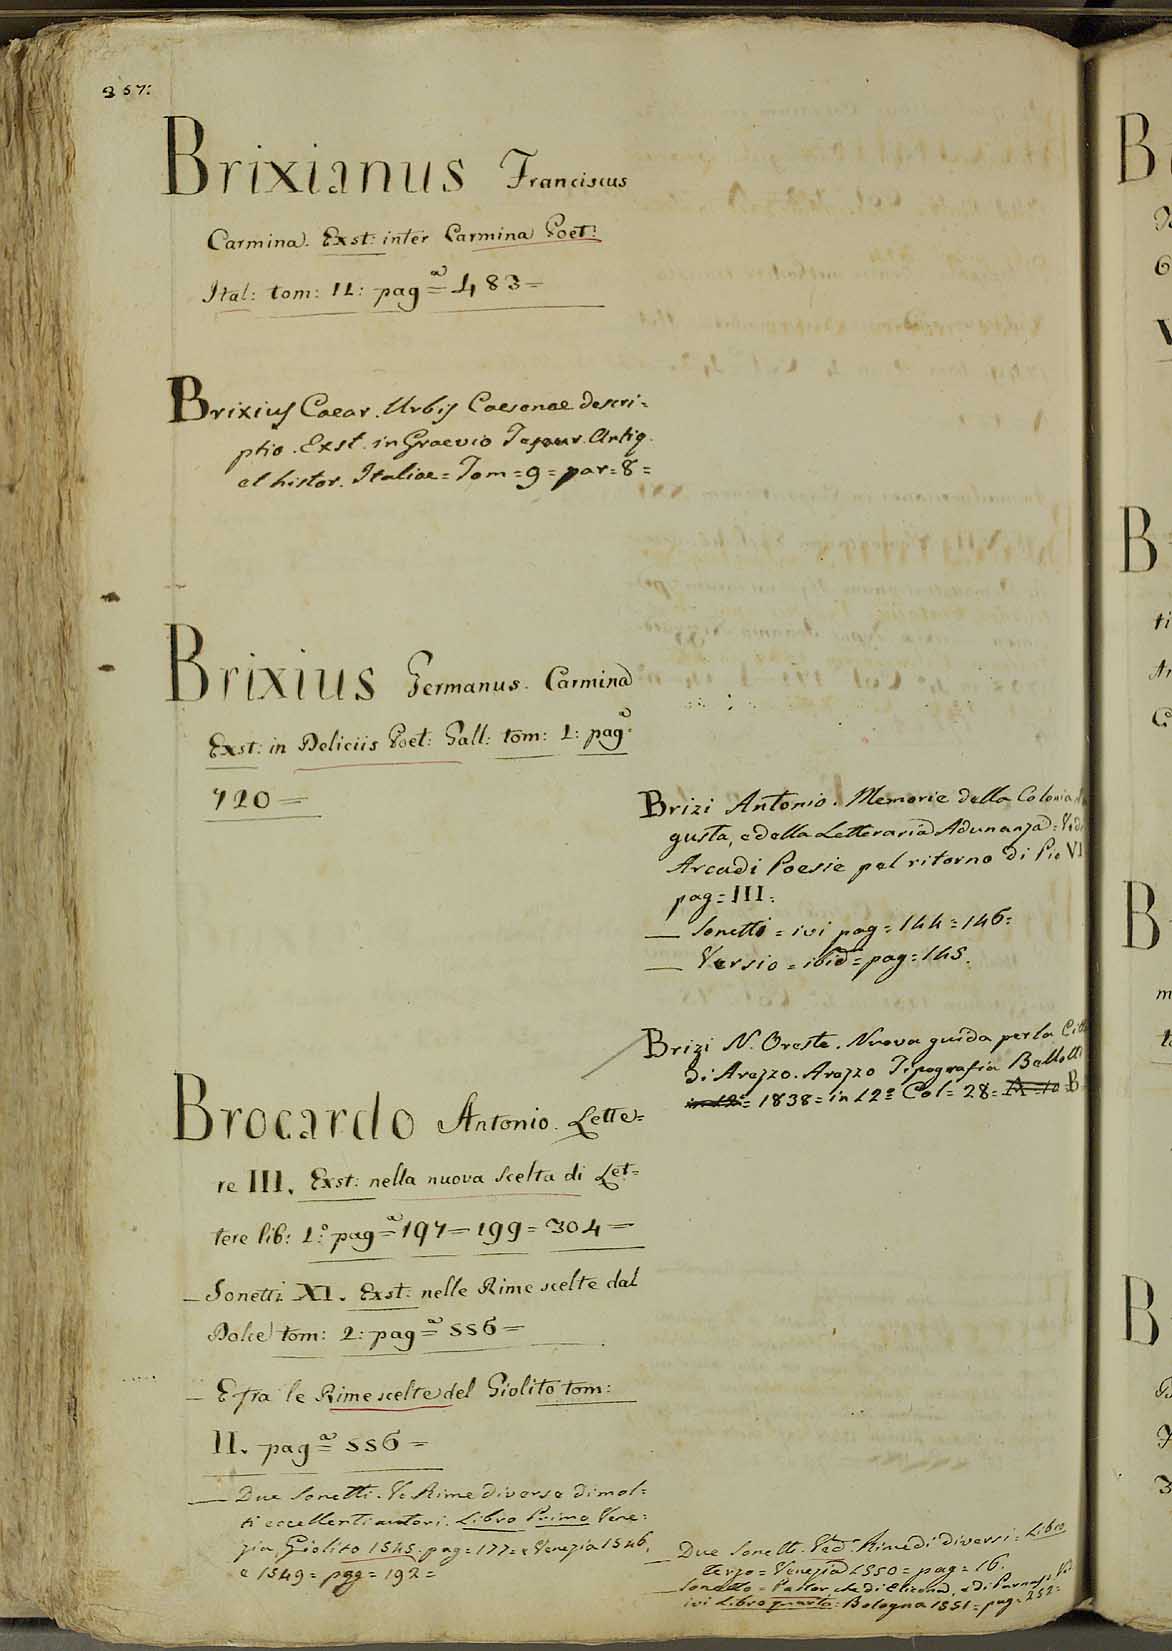 357:
Brixianus Franciscus
Carmina. Exst: inter Carmina Poet:
Ital: tom: II: pagª = 483 =
Brixius Caesar. Urbis Caesenae descri=
ptio. Exst. in Graevio Tesaur. Antiq.
et histor. Italiae = Tom = 9 = par = 8 =
Brixius Germanus. Carmina
Exst: in Deliciis Poet: Gall: tom: 1: pagª:
720 =
Brocardo Antonio. Lette=
re III. Exst: nella nuova scelta di Let=
tere lib: 1º: pagª = 197 = 199 = 304 =
– Sonetti XI. Exst: nelle Rime scelte dal
Dolce tom: 2: pagª = 556 =
– E fra le Rime scelte del Giolito tom:
II. pagª = 556 =
— Due Sonetti. V. Rime diverse di mol=
ti eccellenti autori. Libro Primo Vene=
zia, Giolito 1545. pag = 177 = e Venezia 1546,
e 1549 = pag = 192 =
Brizi Antonio. Memorie della Colonia
gusta, e della Letteraria Adunanza =
Arcadi Poesie pel ritorno di Pio VI
pag = III.
— Sonetti = ivi pag = 144 = 146 =
— Versio = ibid = pag = 145.
Brizi N. Oreste. Nuova guida per la
di Arezzo. Arezzo Tipografia Bellotti
in 12º = 1838 = in 12º Col = 28 = A = 10 = B
— Due Sonetti. Ved. Rime di diversi = Libro
terzo = Venezia 1550 = pag = 16.
— Sonetto = di Parnaso.
ivi Libro quarto = Bologna 1551 = pag = 252 =
B
B
B
B